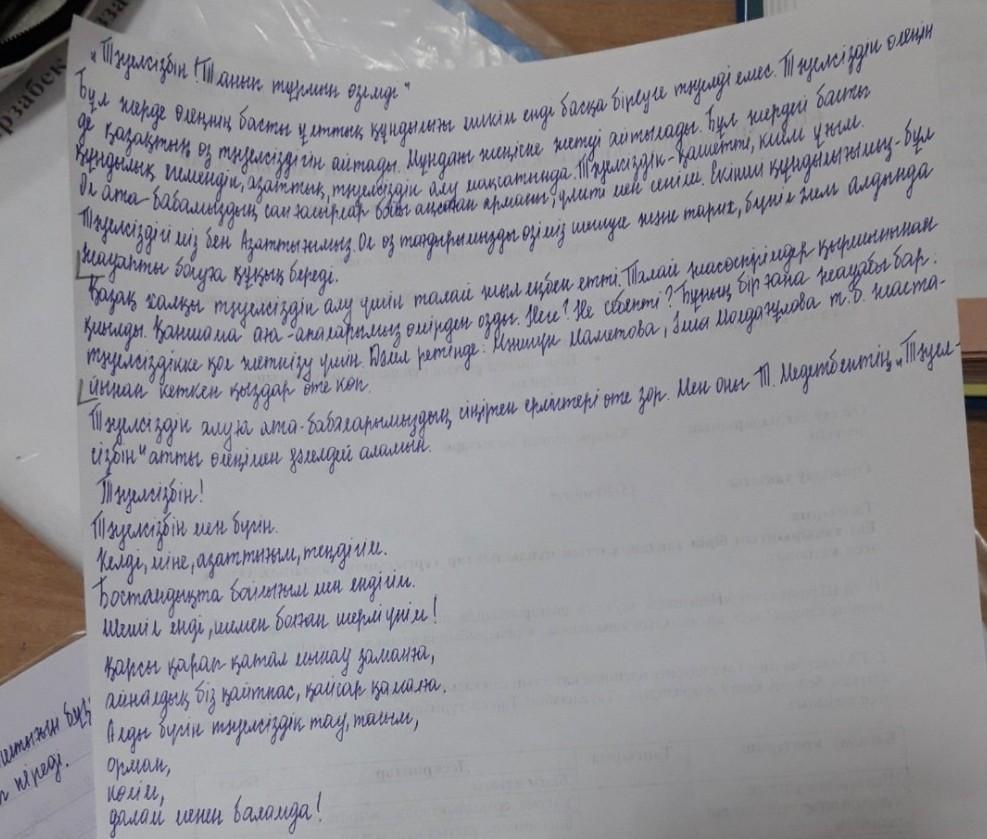 „Тәуелсізбін! Танып тұрмын өзімді"
Бұл жерде өлеңнің басты ұлттық құндылығы ешкім енді басқа біреуге тәуелді емес. Тәуелсіздік өлеңін
де қазақтың өз тәуелсіздігін айтады. Мұндағы жеңіске жетуі айтылады. Бұл жердегі басты
құндылық егемендік, азаттық, тәуелсіздік алу мақсатында. Тәуелсіздік - қасиетті, киелі ұғым.
Ол ата-бабамыздың сан ғасырлар бойы аңсаған арманы, үміті мен сенімі. Екінші құндылығымыз - бұл
Тәуелсіздігіміз бен Азаттығымыз. Ол өз тағдырымызды өзіміз шешуге және тарих, бүкіл әлем алдында
жауапты болуға құқық береді.
Қазақ халқы тәуелсіздік алу үшін талай жыл еңбек етті. Талай жасөспірімдер қыршынынан
қиылды. Қаншама ана-апаларымыз өмірден озды. Неге? Не себепті? Бұның бір ғана жауабы бар:
тәуелсіздікке қол жеткізу үшін. Дәлел ретінде: Мәншүк Маметова, Әлия Молдағұлова т.б. жаста-
йынан кеткен қыздар өте көп.
Тәуелсіздік алуға ата-бабаларымыздың сіңірген ерліктері өте зор. Мен оны Т. Медетбектің „Тәуел-
сізбін" атты өлеңімен дәлелдей аламын.
Тәуелсізбін!
Тәуелсізбін мен бүгін.
Келді, міне, азаттығым, теңдігім.
Бостандықта бойлығым мен ендігім.
Шешіл енді, шемен болған шерлі үнім!
Қарсы қарап қатал мынау заманға,
айналдық біз қайтпас, қайсар қамалға.
Алды бүгін тәуелсіздік тау, тасым,
орман,
көлім,
далам менен балам да!
р піреді.